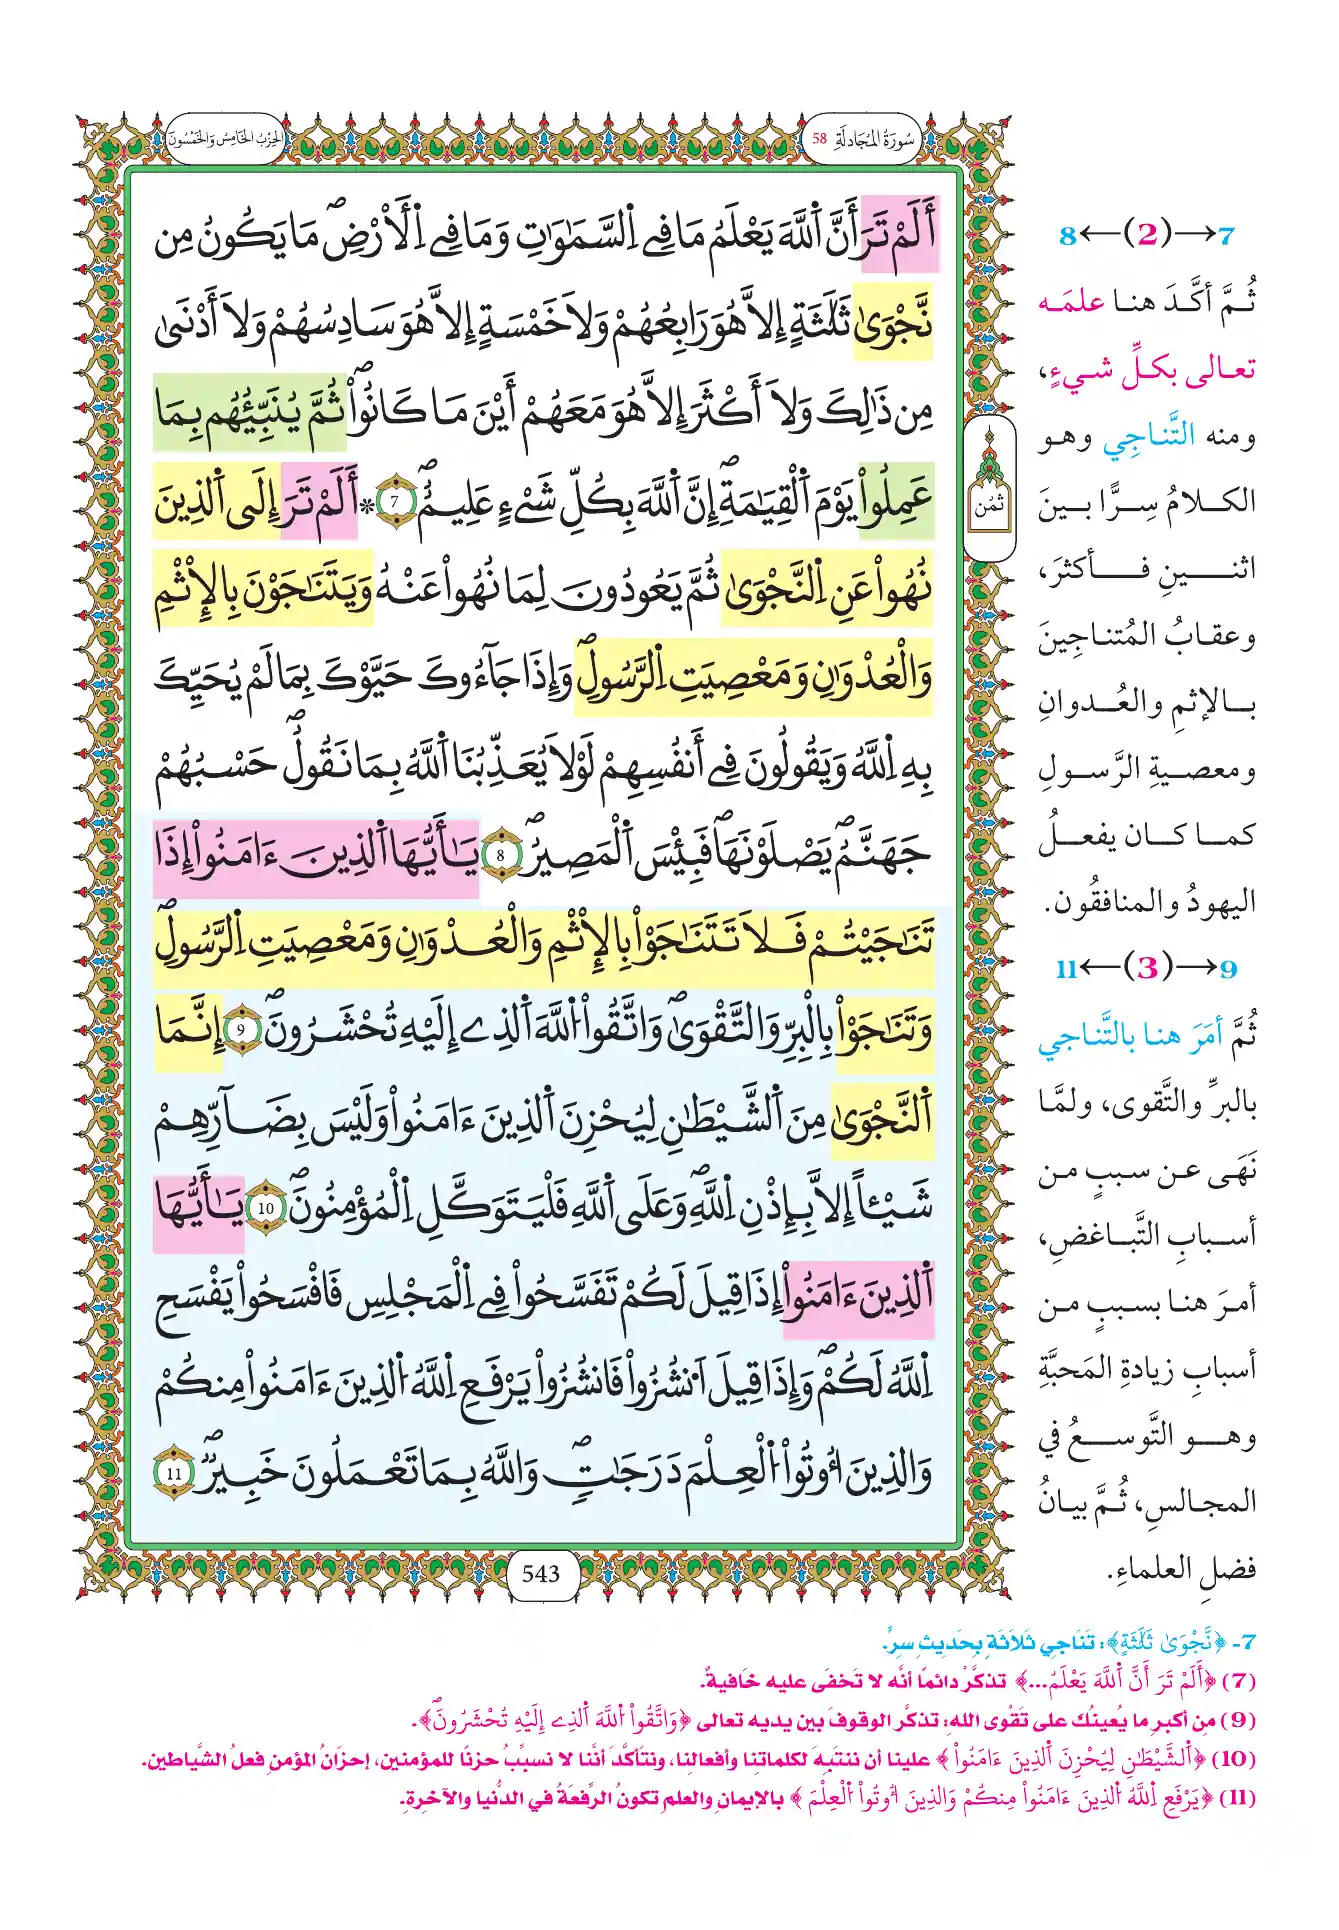 سُورَةُ المُجَادلَةِ 58
الحِزبُ الخَامِسُ وَالخَمْسُونَ
أَلَمْ تَرَ أَنَّ اَللَّهَ يَعْلَمُ مَا فِے اِلسَّمَٰوَٰتِ وَمَا فِے اِلَارْضِۖ مَا يَكُونُ مِن
نَّجْوَىٰ ثَلَٰثَةٍ إِلَّا هُوَ رَابِعُهُمْ وَلَا خَمْسَةٍ إِلَّا هُوَ سَادِسُهُمْ وَلَا أَدْنَىٰ
مِن ذَٰلِكَ وَلَا أَكْثَرَ إِلَّا هُوَ مَعَهُمْ أَيْنَ مَا كَانُواْۖ ثُمَّ يُنَبِّئُهُم بِمَا
عَمِلُواْ يَوْمَ اَلْقِيَٰمَةِۖ إِنَّ اَللَّهَ بِكُلِّ شَےْءٍ عَلِيمٌۖ 7 * أَلَمْ تَرَ إِلَى اَلذِينَ
نُهُواْ عَنِ اِلنَّجْوَىٰ ثُمَّ يَعُودُونَ لِمَا نُهُواْ عَنْهُ وَيَتَنَٰجَوْنَ بِالْإِثْمِ
وَالْعُدْوَٰنِ وَمَعْصِيَتِ اِلرَّسُولِۖ وَإِذَا جَآءُوكَ حَيَّوْكَ بِمَا لَمْ يُحَيِّكَ
بِهِ اِللَّهُ وَيَقُولُونَ فِے أَنفُسِهِمْ لَوْلَا يُعَذِّبُنَا اَللَّهُ بِمَا نَقُولُۖ حَسْبُهُمْ
جَهَنَّمُۖ يَصْلَوْنَهَاۖ فَبِئْسَ اَلْمَصِيرُۖ 8 يَٰأَيُّهَا اَلذِينَ ءَامَنُواْ إِذَا
تَنَٰجَيْتُمْ فَلَا تَتَنَٰجَوْاْ بِالْإِثْمِ وَالْعُدْوَٰنِ وَمَعْصِيَتِ اِلرَّسُولِۖ
وَتَنَٰجَوْاْ بِالْبِرِّ وَالتَّقْوَىٰۖ وَاتَّقُواْ اُللَّهَ اَلذِے إِلَيْهِ تُحْشَرُونَۖ 9 إِنَّمَا
اَلنَّجْوَىٰ مِنَ اَلشَّيْطَٰنِ لِيُحْزِنَ اَلذِينَ ءَامَنُواْ وَلَيْسَ بِضَآرِّهِمْ
شَيْـًٔا إِلَّا بِإِذْنِ اِللَّهِۖ وَعَلَى اَللَّهِ فَلْيَتَوَكَّلِ اِلْمُؤْمِنُونَۖ 10 يَٰأَيُّهَا
اَلذِينَ ءَامَنُواْ إِذَا قِيلَ لَكُمْ تَفَسَّحُواْ فِے اِلْمَجْلِسِ فَافْسَحُواْ يَفْسَحِ
اِللَّهُ لَكُمْۖ وَإِذَا قِيلَ اَنشُزُواْ فَانشُزُواْ يَرْفَعِ اِللَّهُ اُلذِينَ ءَامَنُواْ مِنكُمْ
وَالذِينَ أُوتُواْ اُلْعِلْمَ دَرَجَٰتٖۖ وَاللَّهُ بِمَا تَعْمَلُونَ خَبِيرٌۖ 11
ثُمُن
543
7→(2)←8
ثُمَّ أكَّدَ هنا علمَه
تعالى بكلِّ شيءٍ،
ومنه التَّناجِي وهو
الكلامُ سِرًّا بينَ
اثنينِ فأكثرَ،
وعقابُ المُتناجِينَ
بالإثمِ والعُدوانِ
ومعصيةِ الرَّسولِ
كما كان يفعلُ
اليهودُ والمنافقُون.
9→(3)←11
ثُمَّ أمَرَ هنا بالتَّناجي
بالبرِّ والتَّقوى، ولمَّا
نَهَى عن سببٍ من
أسبابِ التَّباغضِ،
أمرَ هنا بسببٍ من
أسبابِ زيادةِ المَحبَّةِ
وهو التَّوسعُ في
المجالسِ، ثُمَّ بيانُ
فضلِ العلماءِ.
7- ﴿نَّجْوَىٰ ثَلَٰثَةٍ﴾: تَنَاجِي ثَلاثَةٍ بِحَدِيثِ سِرٍّ.
(7) ﴿أَلَمْ تَرَ أَنَّ اَللَّهَ يَعْلَمُ...﴾ تذكَّرْ دائمًا أنَّه لا تَخفَى عليه خَافيةٌ.
(9) مِن أكبرِ ما يُعينُك على تَقْوى اللهِ: تذكَّر الوقوفَ بين يديه تعالى ﴿وَاتَّقُواْ اُللَّهَ اَلذِے إِلَيْهِ تُحْشَرُونَۖ﴾.
(10) ﴿اَلشَّيْطَٰنِ لِيُحْزِنَ اَلذِينَ ءَامَنُواْ﴾ علينا أن ننتَبِهَ لكلماتِنا وأفعالِنا، ونتأكَّدَ أنَّنا لا نسبِّبُ حزنًا للمؤمنين، إحزَانُ المؤمنِ فعلُ الشَّياطينِ.
(11) ﴿يَرْفَعِ اِللَّهُ اُلذِينَ ءَامَنُواْ مِنكُمْ وَالذِينَ أُوتُواْ اُلْعِلْمَ﴾ بالإيمانِ والعلمِ تكونُ الرِّفعَةُ في الدُّنيا والآخرةِ.